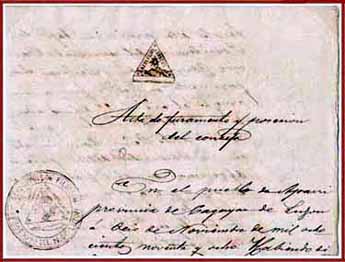 Acta de juramento y posesion
del consejo
En el pueblo de Aparri
provincia de Cagayan de Luzon
á seis de Noviembre de mil ocho
ciento noventa y ocho Habiendo si